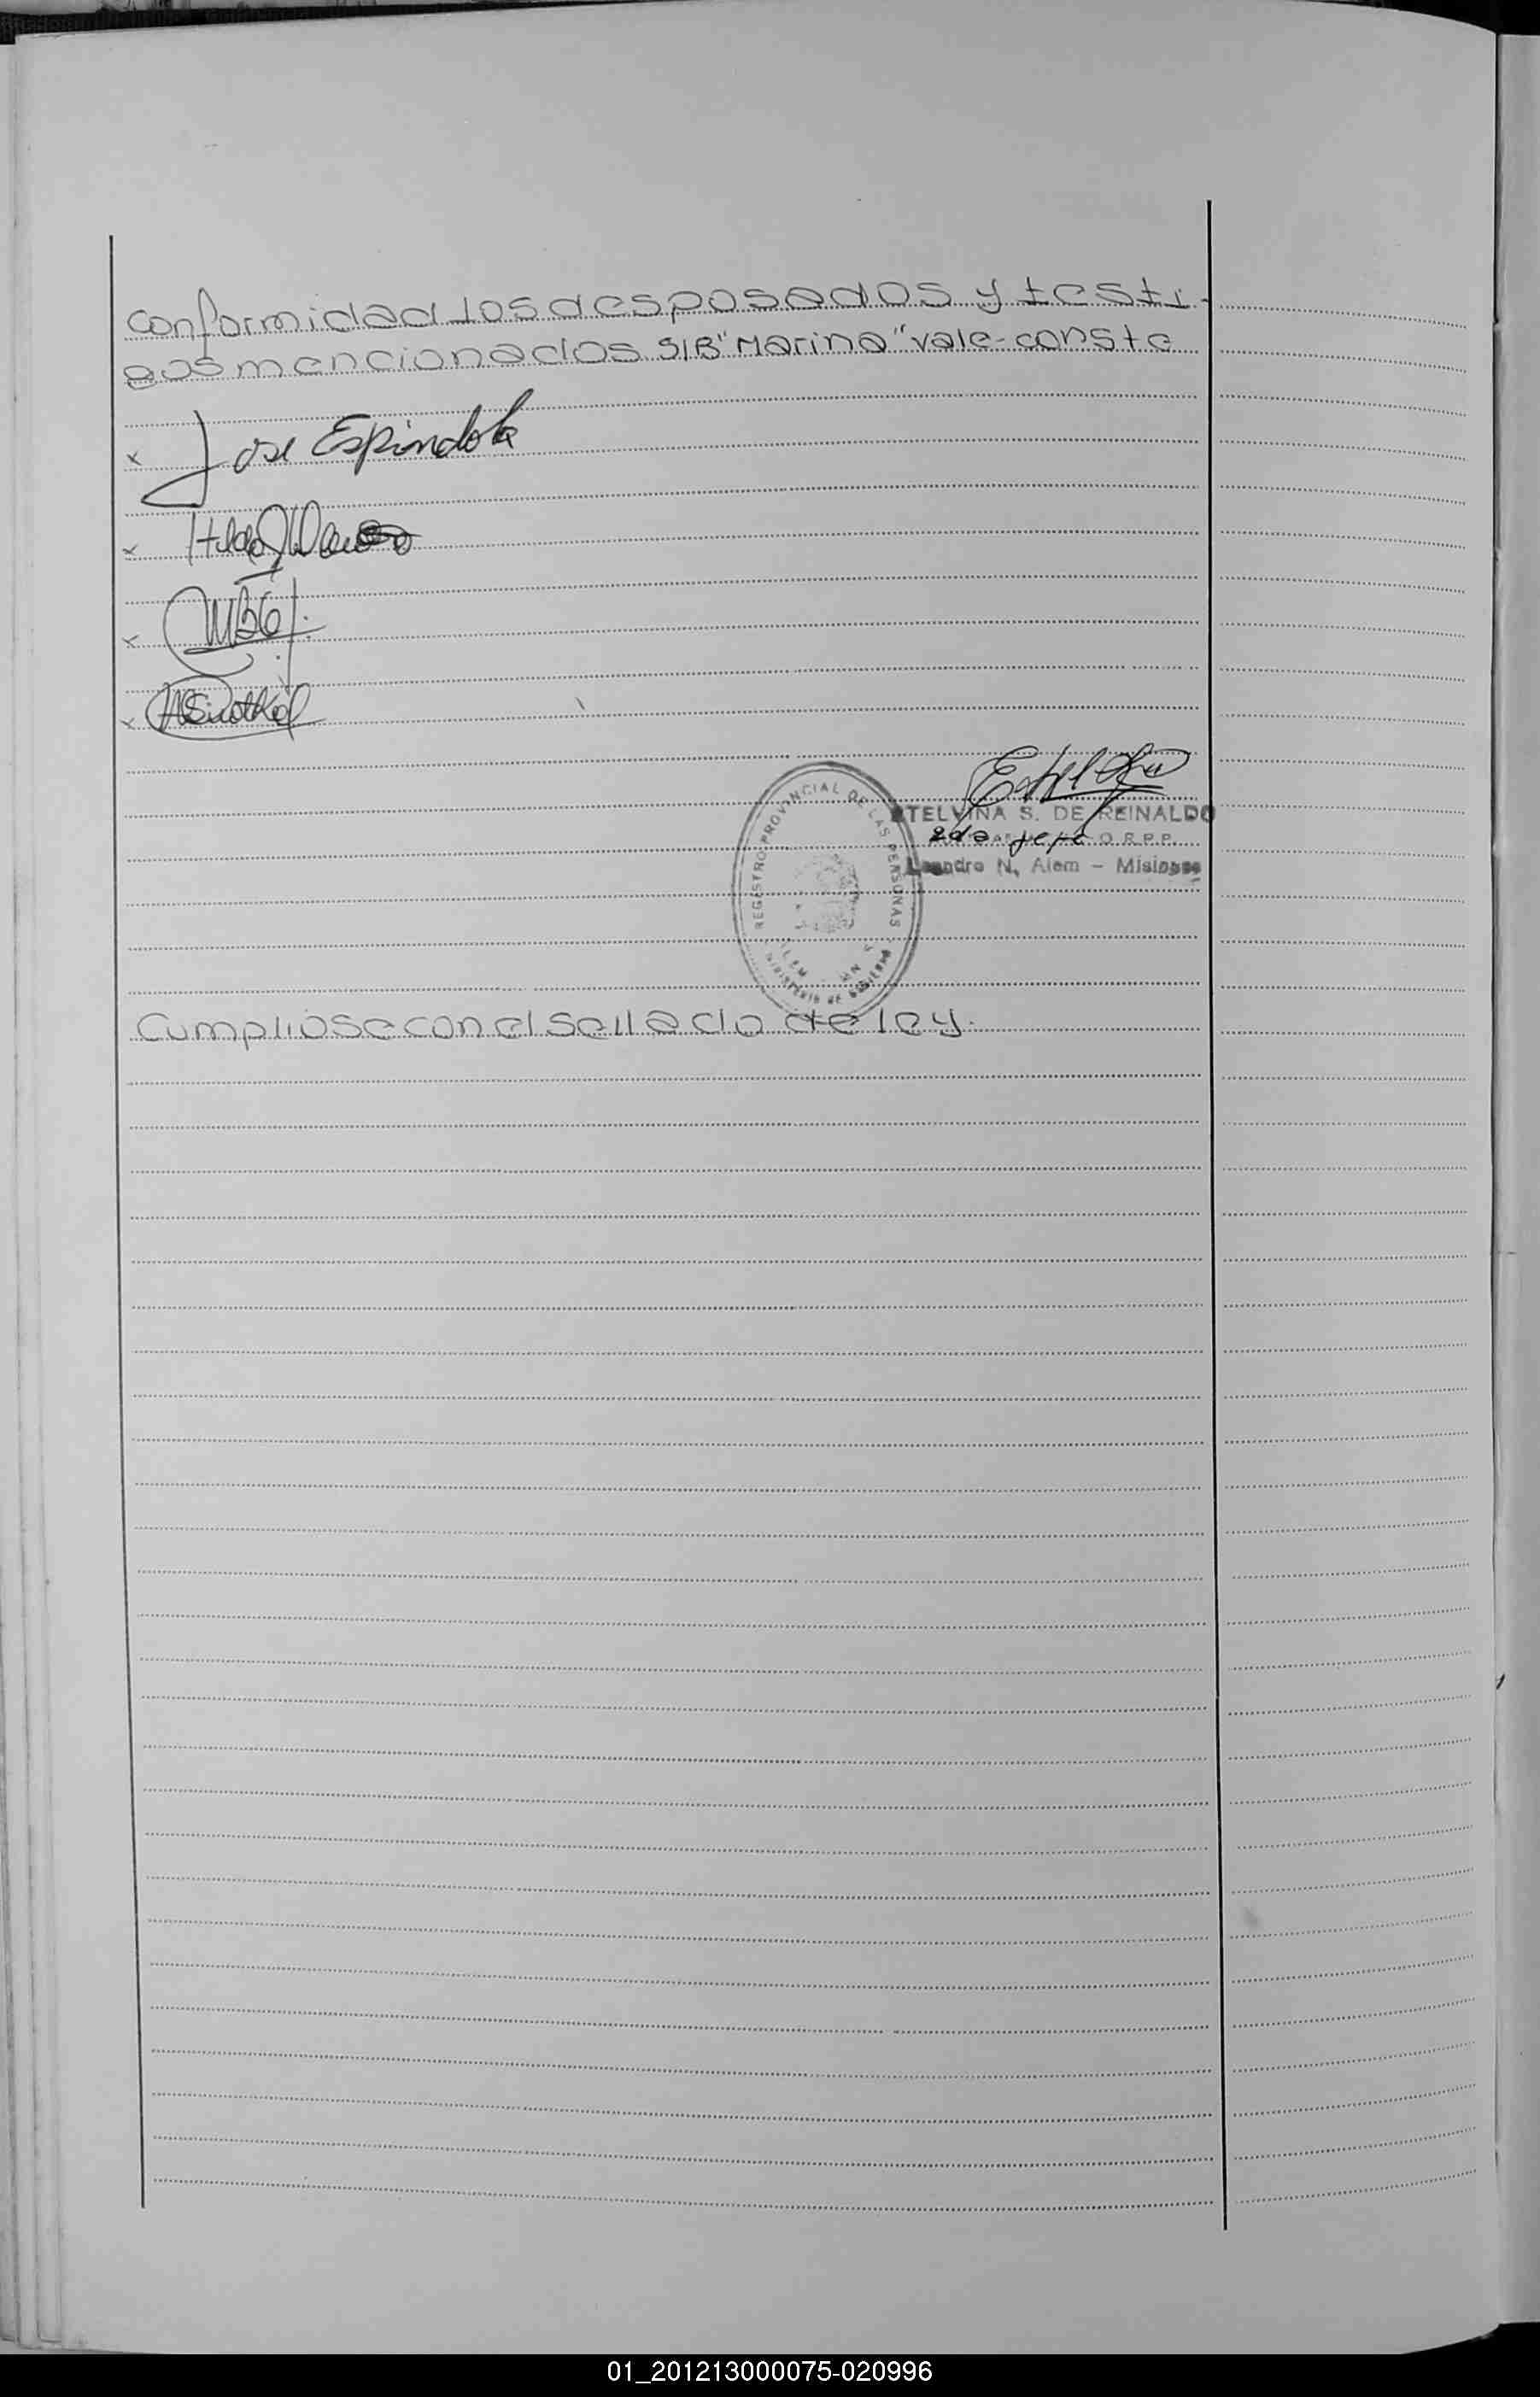 conformidad los desposados y testi-
gos mencionados S/B "Marina" vale-conste
x Jose Espindola
x Hilda
x
x
TELVINA S. DE REINALDO
2da jefe O.R.P.P.
Leandro N. Alem - Misiones
REGISTRO PROVINCIAL DE LAS PERSONAS
MINISTERIO DE GOBIERNO
Cumpliose con el sellado de ley.
01_201213000075-020996